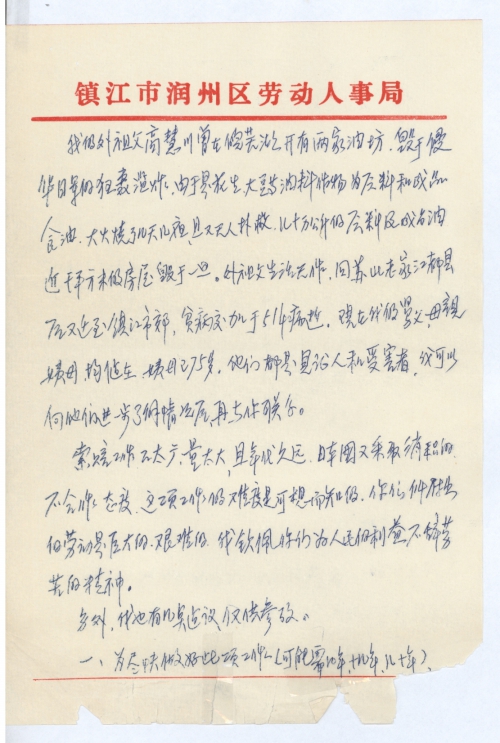 镇江市润州区劳动人事局
我的外祖父高慧川曾在皖芜湖开有两家油坊，毁于侵
华日军的狂轰滥炸。由于是花生、大豆等油料作物为原料和成品
食油，大火烧了几天几夜，且又无人扑救，几十万公斤的原料及成品油
近千平方米的房屋毁于一旦。外祖父生活无作，回苏北老家江都县
后又迁至镇江市郊，贫病交加于51年病逝。现在我的舅父、母亲
姨母均健在，姨母已75岁，他们都是见证人和受害者，我可以
向他们进一步了解情况后，再与你联系。
索赔工作面太广，量太大，且年代久远，日本国又采取消积的
不合作态度，这项工作的难度是可想而知的，你们所付出
的劳动是巨大的、艰难的，我钦佩你们为人民的利益不辞劳
苦的精神。
另外，我也有几点建议，仅供参考。
一、为尽快做好此项工作（可能需几年、十几年、几十年）